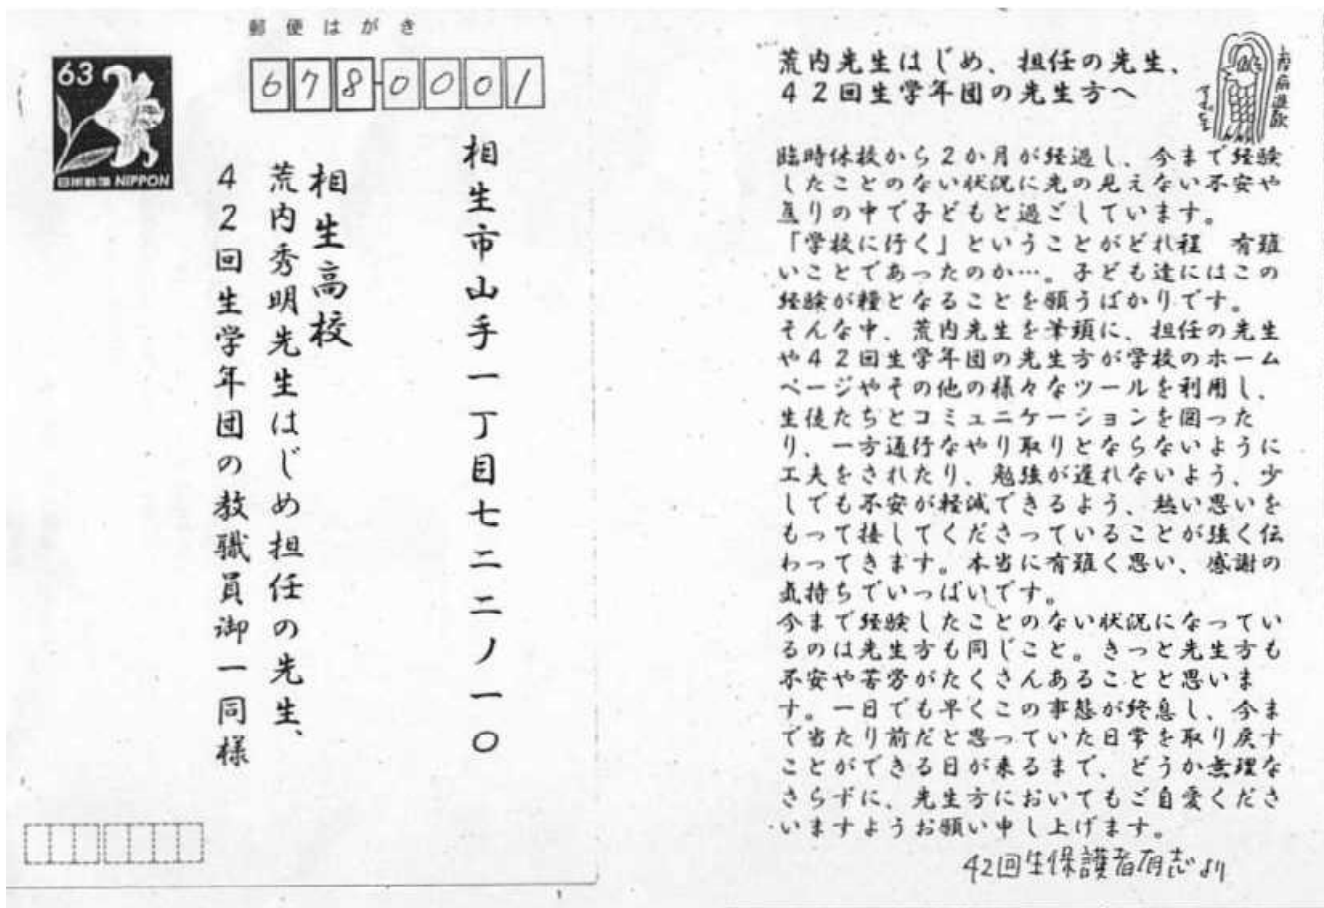 郵便はがき
63
日本郵便 NIPPON
678-0001
相生市山手一丁目七二二ノ一〇
相生高校
荒内秀明先生はじめ担任の先生、
42回生学年団の教職員御一同様
荒内先生はじめ、担任の先生、
42回生学年団の先生方へ
臨時休校から2か月が経過し、今まで経験
したことのない状況に先の見えない不安や
焦りの中で子どもと過ごしています。
「学校に行く」ということがどれ程 有難
いことであったのか…。子ども達にはこの
経験が糧となることを願うばかりです。
そんな中、荒内先生を筆頭に、担任の先生
や42回生学年団の先生方が学校のホーム
ページやその他の様々なツールを利用し、
生徒たちとコミュニケーションを図った
り、一方通行なやり取りとならないように
工夫をされたり、勉強が遅れないよう、少
しでも不安が軽減できるよう、熱い思いを
もって接してくださっていることが強く伝
わってきます。本当に有難く思い、感謝の
気持ちでいっぱいです。
今まで経験したことのない状況になってい
るのは先生方も同じこと。きっと先生方も
不安や苦労がたくさんあることと思いま
す。一日でも早くこの事態が終息し、今ま
で当たり前だと思っていた日常を取り戻す
ことができる日が来るまで、どうか無理な
さらずに、先生方においてもご自愛くださ
いますようお願い申し上げます。
42回生保護者有志より